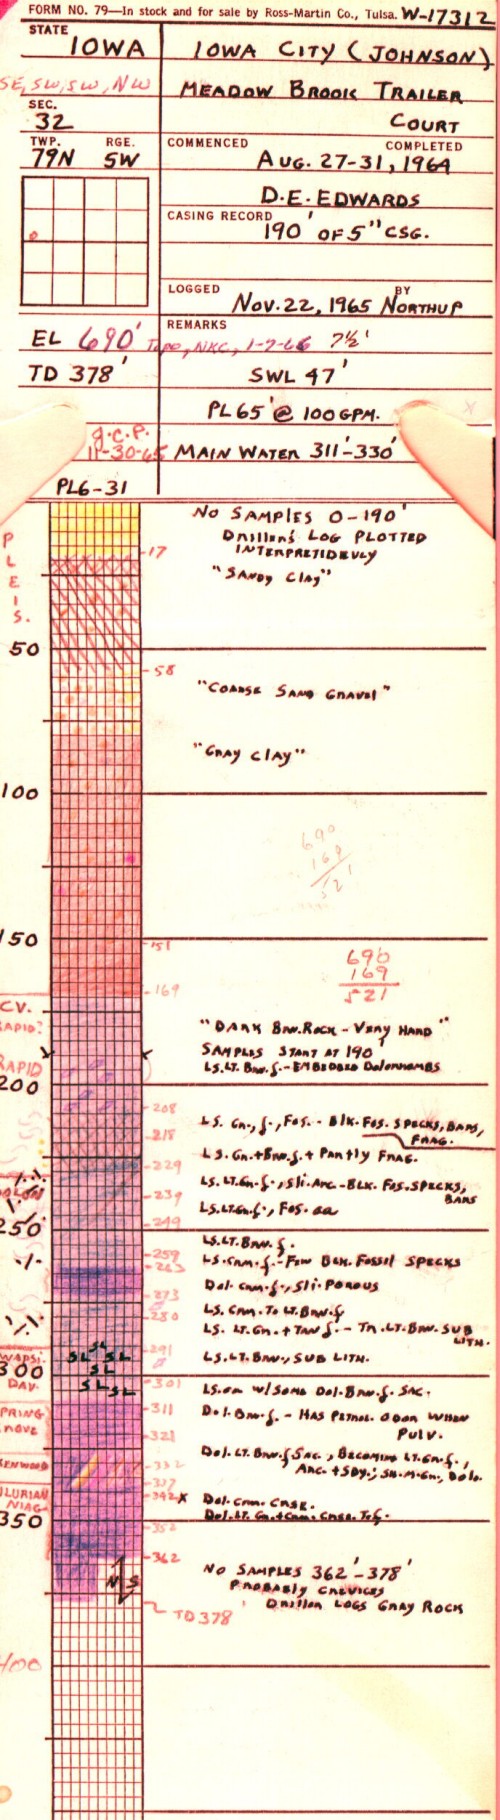 FORM NO. 79—In stock and for sale by Ross-Martin Co., Tulsa. W-17312
STATE
IOWA
IOWA CITY (JOHNSON)
SE, SW, SW, NW
MEADOW BROOK TRAILER
COURT
SEC.
32
TWP. RGE.
79N 5W
COMMENCED COMPLETED
AUG. 27-31, 1964
D.E. EDWARDS
CASING RECORD
190' OF 5" CSG.
LOGGED BY
NOV. 22, 1965 NORTHUP
EL 690' Topo, NKC, 1-7-66 7½'
REMARKS
TD 378'
SWL 47'
PL 65' @ 100 GPM.
g.c.p.
11-30-65
MAIN WATER 311'-330'
PL6-31
NO SAMPLES 0-190'
DRILLER'S LOG PLOTTED
INTERPRETIDEVLY
PLEIS.
17
"SANDY CLAY"
50
58
"COARSE SAND GRAVEL"
"GRAY CLAY"
100
690
169
521
150
151
690
169
521
169
CV.
RAPID?
"DARK BRN. ROCK - VERY HARD"
SAMPLES START AT 190'
LS. LT. BRN. f. - EMBEDDED DOLORHOMBS
RAPID
200
208
LS. GN., f., FOS. - BLK. FOS. SPECKS, BARS,
FRAG.
218
LS. GN. + BRN. f. + PARTLY FRAG.
229
LS. LT. GN. f., SLI. ARG. - BLK. FOS. SPECKS,
BARS
239
LS. LT. GN. f., FOS. aa
249
250
LS. LT. BRN. f.
259
LS. CRM. f. - FEW BLK. FOSSIL SPECKS
263
DOL. CRM. f., SLI. POROUS
273
LS. CRM. TO LT. BRN. f.
280
LS. LT. GN. + TAN f. - TR. LT. BRN. SUB
LITH.
291
SL SL SL
LS. LT. BRN., SUB LITH.
WAPSI.
300
SL
DAV.
SL SL
301
LS. aa W/SOME DOL. BRN. f. SAC.
311
SPRING
GROVE
DOL. BRN. f. - HAS PETROL. ODOR WHEN
PULV.
321
DOL. LT. BRN. f. SAC., BECOMING LT. GN. f.,
ARG. + SDY.; SH. M. GN., DOLO.
KENWOOD
332
337
SILURIAN
NIAG.
342 X
DOL. CRM. CRSE.
350
352
362
NS
NO SAMPLES 362'-378'
PROBABLY CREVICES
DRILLER LOGS GRAY ROCK
TD 378'
400